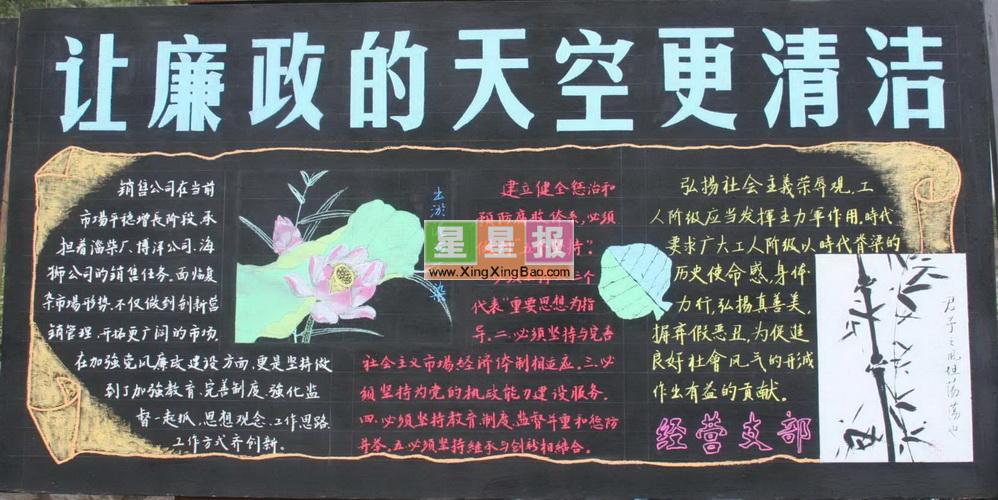 让廉政的天空更清洁
销售公司在当前
市场平稳增长阶段,承
担着漂染厂、博洋公司、海
狮公司的销售任务,面临复
杂市场形势,不仅做到创新营
销管理,开拓更广阔的市场,
在加强党风廉政建设方面,更是坚持做
到了加强教育、完善制度、强化监
督一起抓,思想观念、工作思路、
工作方式齐创新。
出淤
染
建立健全惩治和
预防腐败体系,必须
持":
三个
代表"重要思想为指
导、二、必须坚持与完善
社会主义市场经济体制相适应、三、必
须坚持为党的执政能力建设服务、
四、必须坚持教育、制度、监督并重和惩防
并举、五、必须坚持继承与创新相结合。
弘揚社会主義荣辱观,工
人阶级应当发挥主力軍作用,時代
要求广大工人阶级以時代脊梁的
历史使命感,身体
力行,弘揚真善美,
摒弃假恶丑,为促進
良好社會风气的形成
作出有益的贡献。
经营支部
君子之风坦荡荡也
星星报
www.XingXingBao.com